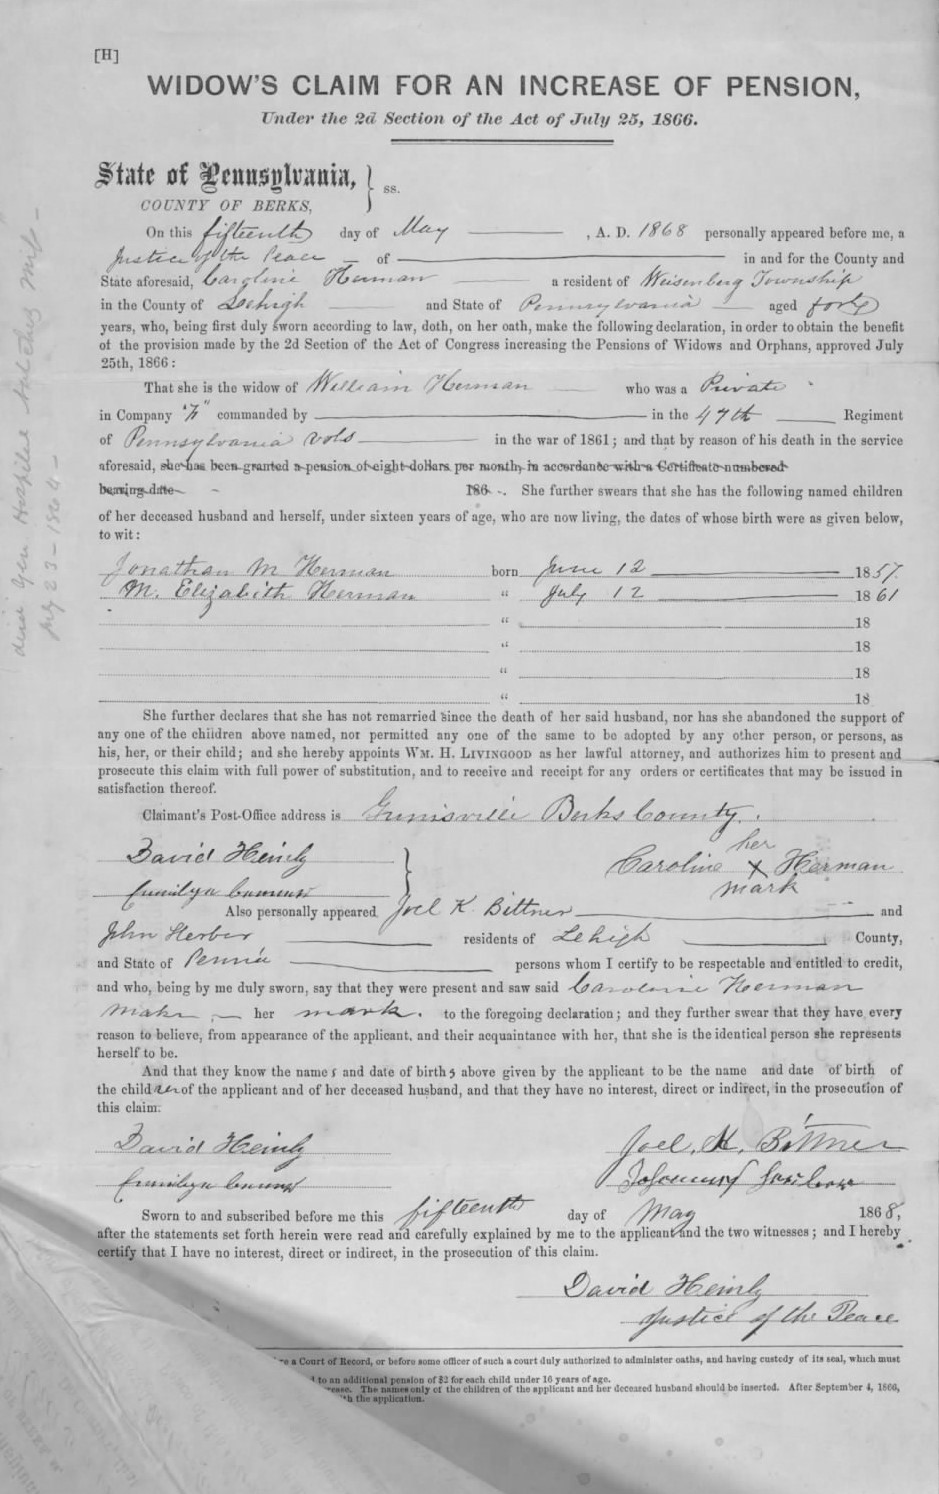 [H]
WIDOW'S CLAIM FOR AN INCREASE OF PENSION,
Under the 2d Section of the Act of July 25, 1866.
State of Pennsylvania,
ss.
COUNTY OF BERKS,
On this fifteenth day of May , A. D. 1868 personally appeared before me, a
Justice of the Peace of in and for the County and
State aforesaid, Caroline Herman a resident of Weisenberg Township
in the County of Lehigh and State of Pennsylvania aged forty
years, who, being first duly sworn according to law, doth, on her oath, make the following declaration, in order to obtain the benefit
of the provision made by the 2d Section of the Act of Congress increasing the Pensions of Widows and Orphans, approved July
25th, 1866:
That she is the widow of William Herman who was a Private
in Company commanded by in the 47th Regiment
of Pennsylvania vols in the war of 1861; and that by reason of his death in the service
aforesaid, she has been granted a pension of eight dollars per month, in accordance with a Certificate numbered
bearing date 186 . She further swears that she has the following named children
of her deceased husband and herself, under sixteen years of age, who are now living, the dates of whose birth were as given below,
to wit:
Jonathan M Herman born June 12 1857.
M. Elizabeth Herman " July 12 1861
" 18
" 18
" 18
" 18
She further declares that she has not remarried since the death of her said husband, nor has she abandoned the support of
any one of the children above named, nor permitted any one of the same to be adopted by any other person, or persons, as
his, her, or their child; and she hereby appoints WM. H. LIVINGOOD as her lawful attorney, and authorizes him to present and
prosecute this claim with full power of substitution, and to receive and receipt for any orders or certificates that may be issued in
satisfaction thereof.
Claimant's Post-Office address is Berks County.
her
David Heinly Caroline X Herman
mark
Also personally appeared Joel K. Bittner and
John Herber residents of Lehigh County,
and State of Penna persons whom I certify to be respectable and entitled to credit,
and who, being by me duly sworn, say that they were present and saw said Caroline Herman
make her mark. to the foregoing declaration; and they further swear that they have every
reason to believe, from appearance of the applicant, and their acquaintance with her, that she is the identical person she represents
herself to be.
And that they know the names and date of births above given by the applicant to be the name and date of birth of
the children of the applicant and of her deceased husband, and that they have no interest, direct or indirect, in the prosecution of
this claim.
David Heinly Joel. K. Bittner
Sworn to and subscribed before me this fifteenth day of May 1868,
after the statements set forth herein were read and carefully explained by me to the applicant and the two witnesses; and I hereby
certify that I have no interest, direct or indirect, in the prosecution of this claim.
David Heinly
Justice of the Peace
a Court of Record, or before some officer of such a court duly authorized to administer oaths, and having custody of its seal, which must
to an additional pension of $2 for each child under 16 years of age.
The names only of the children of the applicant and her deceased husband should be inserted. After September 4, 1866,
the application.
Gen Hospital Natchez Miss
July 23-1864